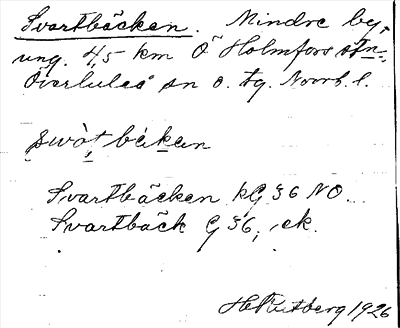 Svartbäcken. Mindre byg-
ung. 4,5 km Ö Holmfors stn.
Överluleå sn o. tg. Norrb. l.
swòt bäkan
Svartbäcken kG 36 NO.
Svartbäck G 36, ek.
H Rutberg 1926